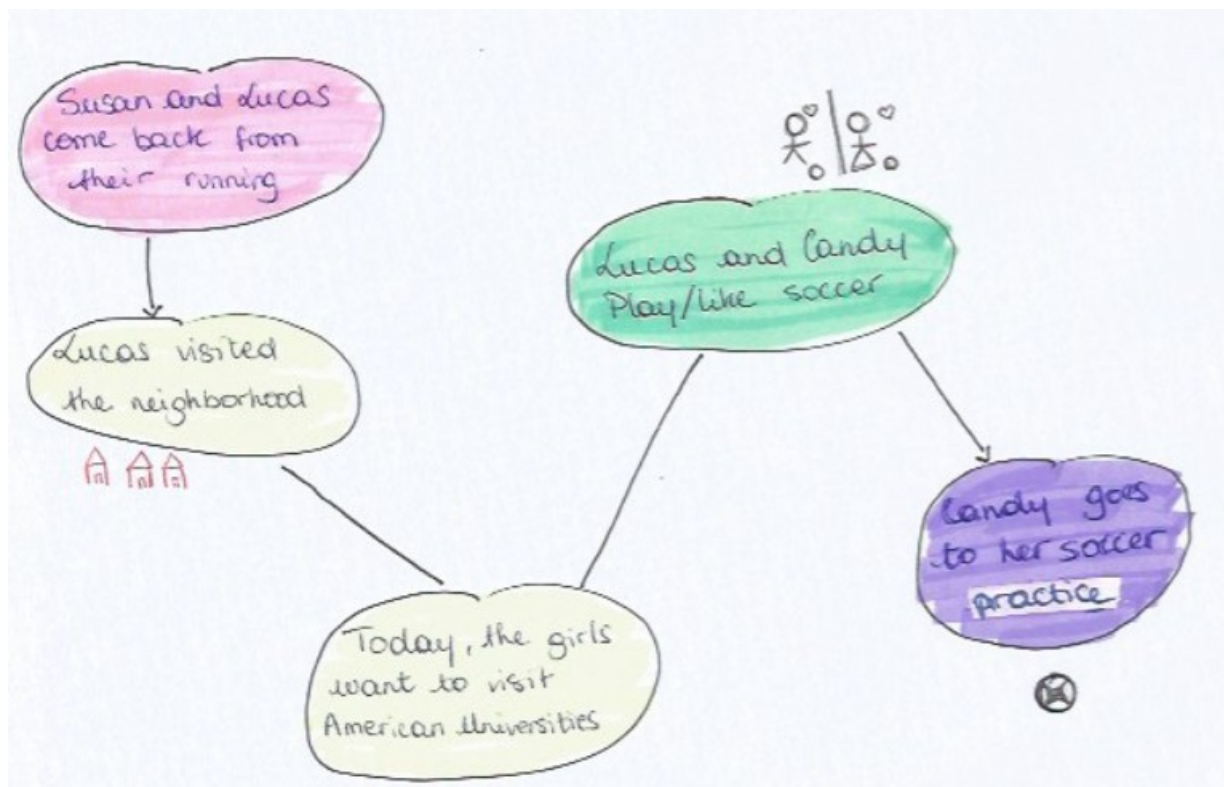 Susan and Lucas
come back from
their running
Lucas visited
the neighborhood
Today, the girls
want to visit
American Universities
Lucas and Candy
Play/like soccer
Candy goes
to her soccer
practice